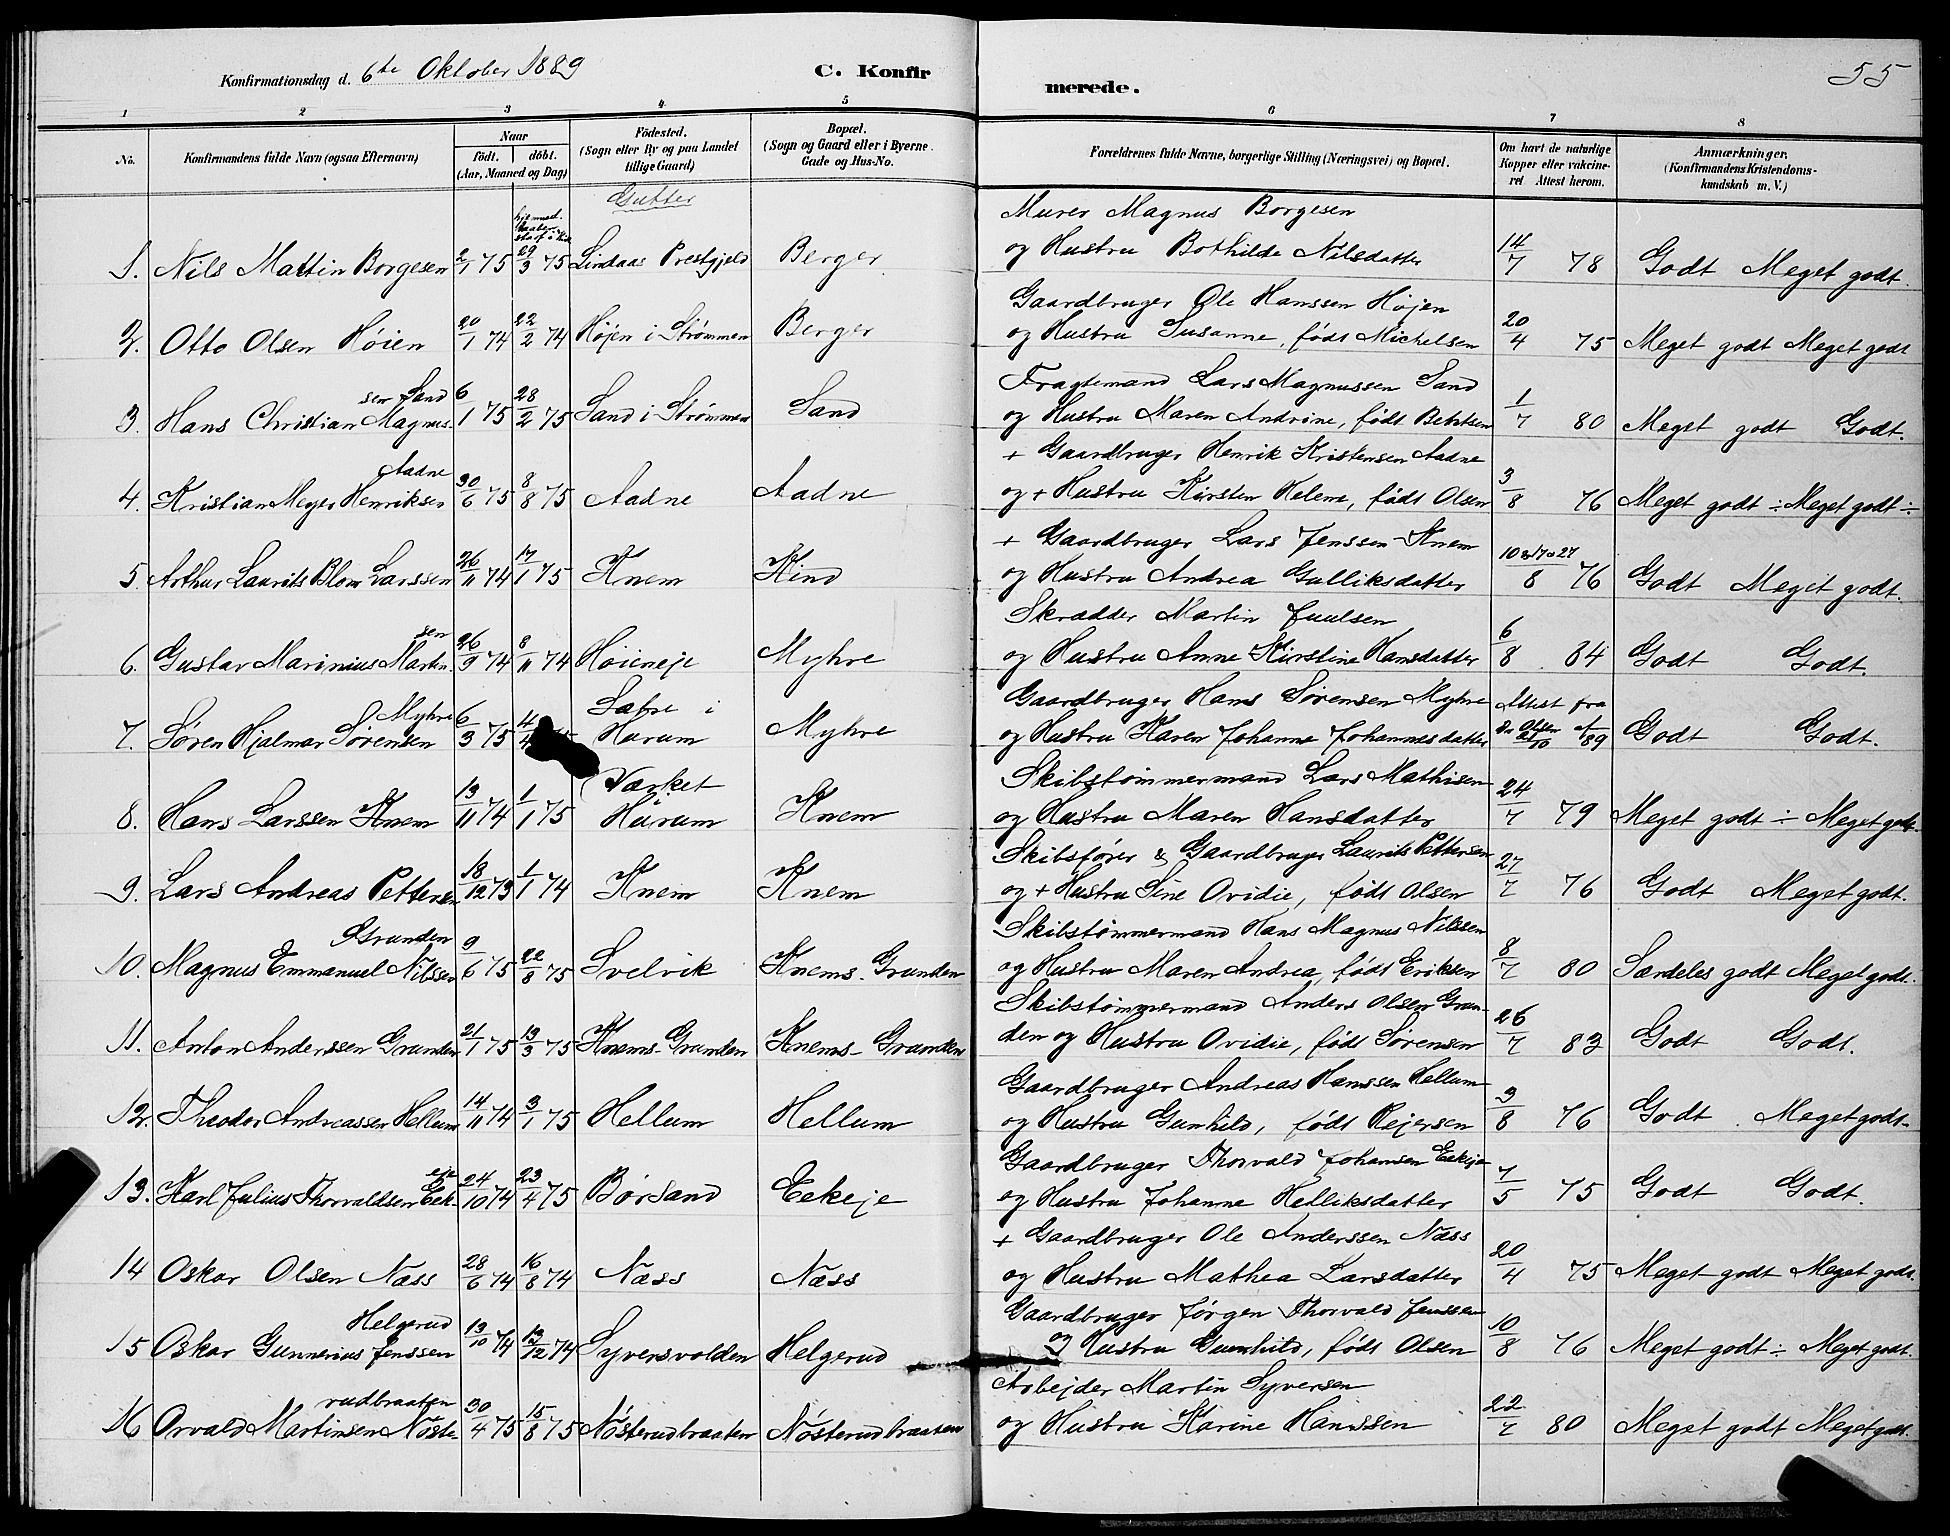 Konfirmationsdag d. 6te Oktober 1889
C. Konfirmerede.
55
1 2 3 4 5 6 7 8
No.
Konfirmandens fulde Navn (ogsaa Efternavn)
Naar
født. døbt.
(Aar, Maaned og Dag)
Fødested.
(Sogn eller By og paa Landet
tillige Gaard)
Bopæl.
(Sogn og Gaard eller i Byerne
Gade og Hus-No.
Forældrenes fulde Navne, borgerlige Stilling (Næringsvei) og Bopæl.
Om havt de naturlige
Kopper eller vakcine-
ret Attest herom.
Anmærkninger.
(Konfirmandens Kristendoms-
kundskab m. V.)
Gutter
Murer Magnus Borgesen
1. Nils Martin Borgesen 2/1 75 29/3 75 Lindaas Prestgjeld Berger og Hustru Bothilde Nilsdatter 14/7 78 Godt Meget godt.
Gaardbruger Ole Hanssen Højen
2. Otto Olsen Høien 20/1 74 22/2 74 Højen i Strømmen Berger og Hustru Susanne, født Michelsen 20/4 75 Meget godt Meget godt
sen Sand Fragtemand Lars Magnussen Sand
3. Hans Christian Magnus- 6/1 75 28/2 75 Sand i Strømmen Sand og Hustru Maren Andrine, født Berntsen 1/7 80 Meget godt Godt.
Aadne + Gaardbruger Henrik Kristensen Aadne
4. Kristian Meyer Henriksen 30/6 75 8/8 75 Aadne Aadne og + Hustru Kirsten Helene, født Olsen 3/8 76 Meget godt ÷ Meget godt ÷
+ Gaardbruger Lars Jenssen Knem
5. Arthur Laurits Blom Larssen 26/11 74 17/1 75 Knem Kind og Hustru Andrea Gulliksdatter 10 & 17 & 27/8 76 Godt Meget godt.
sen Skrædder Martin Juulsen
6. Gustav Marinius Martin- 26/9 74 8/11 74 Høieneje Myhre og Hustru Anne Kirstine Hansdatter 6/8 84 Godt Godt.
Myhre Sætre i Gaardbruger Hans Sørensen Myhre Attest fra
7. Søren Hjalmar Sørensen 6/3 75 Hurum Myhre og Hustru Karen Johanne Johannesdatter Dr Olsen 89 Godt Godt.
Værket Skibstømmermand Lars Mathisen
8. Hans Larssen Knem 13/11 74 1/1 75 Hurum Knem og Hustru Maren Hansdatter 24/7 79 Meget godt ÷ Meget godt.
Skibsfører & Gaardbruger Laurits Pettersen
9. Lars Andreas Pettersen 18/12 73 1/1 74 Knem Knem og + Hustru Sine Ovidie, født Olsen 27/7 76 Godt Meget godt.
Grunden Skibstømmermand Hans Magnus Nilssen
10. Magnus Emmanuel Nilssen 9/6 75 22/8 75 Svelvik Knems-Grunden og Hustru Maren Andrea, født Eriksen 8/7 80 Særdeles godt Meget godt.
Skibstømmermand Anders Olsen Grun-
11. Anton Anderssen Grunden 21/1 75 13/3 75 Knems-Grunden Knems-Grunden den og Hustru Ovidie, født Sørensen 26/7 83 Godt Godt.
Gaardbruger Andreas Hanssen Hellum
12. Theodor Andreassen Hellum 14/11 74 3/1 75 Hellum Hellum og Hustru Gunhild, født Rejersen 3/8 76 Godt Meget godt.
eje Gaardbruger Thorvald Johansen Eekeje
13. Karl Julius Thorvaldsen Eek- 24/10 74 23/4 75 Børsand Eekeje og Hustru Johanne Helliksdatter 7/5 75 Godt Godt.
+ Gaardbruger Ole Anderssen Næss
14 Oskar Olsen Næss 28/6 74 16/8 74 Næss Næss og Hustru Mathea Larsdatter 20/4 75 Meget godt Meget godt.
Helgerud Gaardbruger Jørgen Thorvald Jenssen
15 Oskar Gunnerius Jenssen 13/10 74 13/12 74 Syversvolden Helgerud og Hustru Gunhild, født Olsen 10/8 76 Meget godt ÷ Meget godt.
rudbraaten Arbejder Martin Syversen
16 Orvald Martinsen Nøste- 30/4 75 15/8 75 Nøsterudbraaten Nøsterudbraaten og Hustru Karine Hanssen 22/7 80 Meget godt Meget godt.